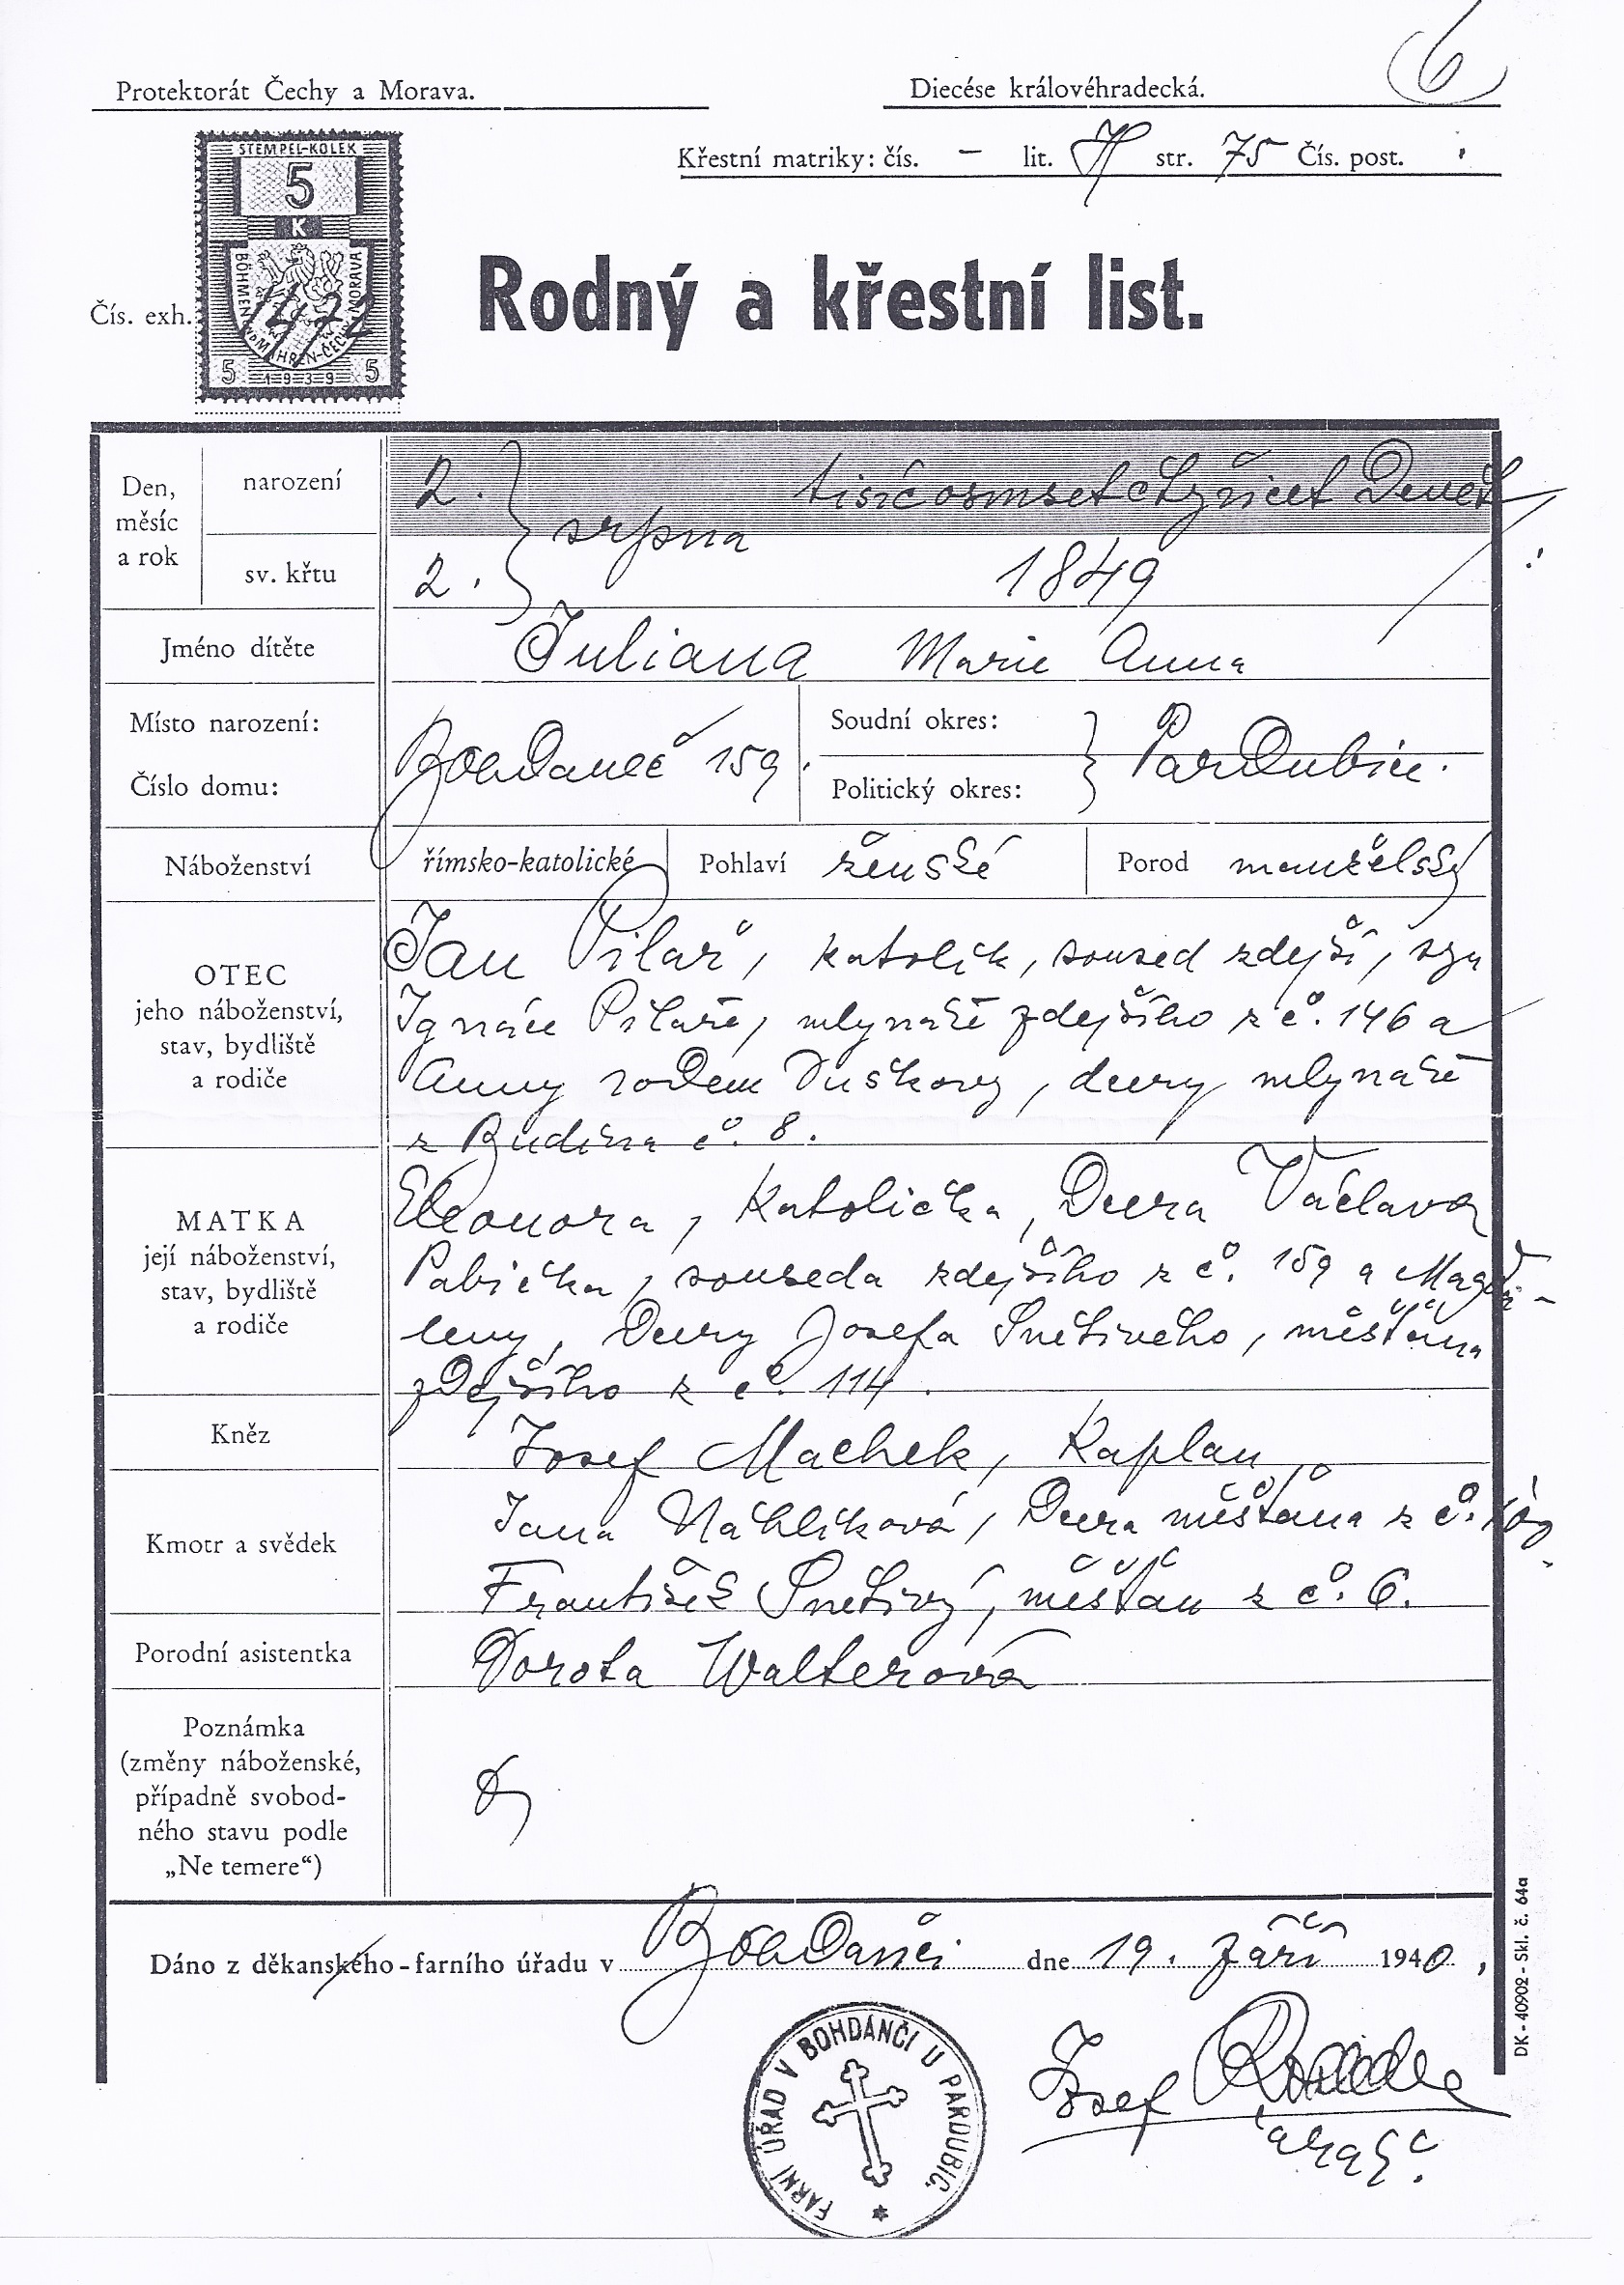 6
Protektorát Čechy a Morava.
Diecése královéhradecká.
Křestní matriky: čís. – lit. str. 75 Čís. post.
STEMPEL-KOLEK
5
K
BÖHMEN U. MÄHREN-ČECHY MORAVA
5 1939 5
Čís. exh. 1472
Rodný a křestní list.
Den, měsíc a rok
narození 2. srpna tisícosmset čtyřicet devět
sv. křtu 2. 1849
Jméno dítěte Juliana Marie Anna
Místo narození:
Číslo domu:
Bohdaneč 159.
Soudní okres:
Politický okres:
Pardubice.
Náboženství římsko-katolické Pohlaví ženské Porod manželský
OTEC
jeho náboženství,
stav, bydliště
a rodiče
Jan Pilař, katolík, soused zdejší, syn
Ignáce Pilaře, mlynáře zdejšího z č. 146 a
Anny rodem Duškovy, dcery mlynáře
z č. 8.
MATKA
její náboženství,
stav, bydliště
a rodiče
Eleonora, katolička, dcera Václava
souseda zdejšího z č. 159 a Magda-
leny, dcery Josefa Snětivého, měšťana
zdejšího z č. 114.
Kněz Josef Machek, kaplan
Kmotr a svědek
Jana Náhlíková, dcera měšťana z č.
František Snětivý, měšťan z č. 6.
Porodní asistentka Dorota Walterová
Poznámka
(změny náboženské,
případně svobod-
ného stavu podle
„Ne temere“)
Dáno z děkanského-farního úřadu v Bohdanči dne 19. září 1940.
DK - 40902 - Skl. č. 64a
FARNÍ ÚŘAD V BOHDANČI U PARDUBIC.
Josef
farář.